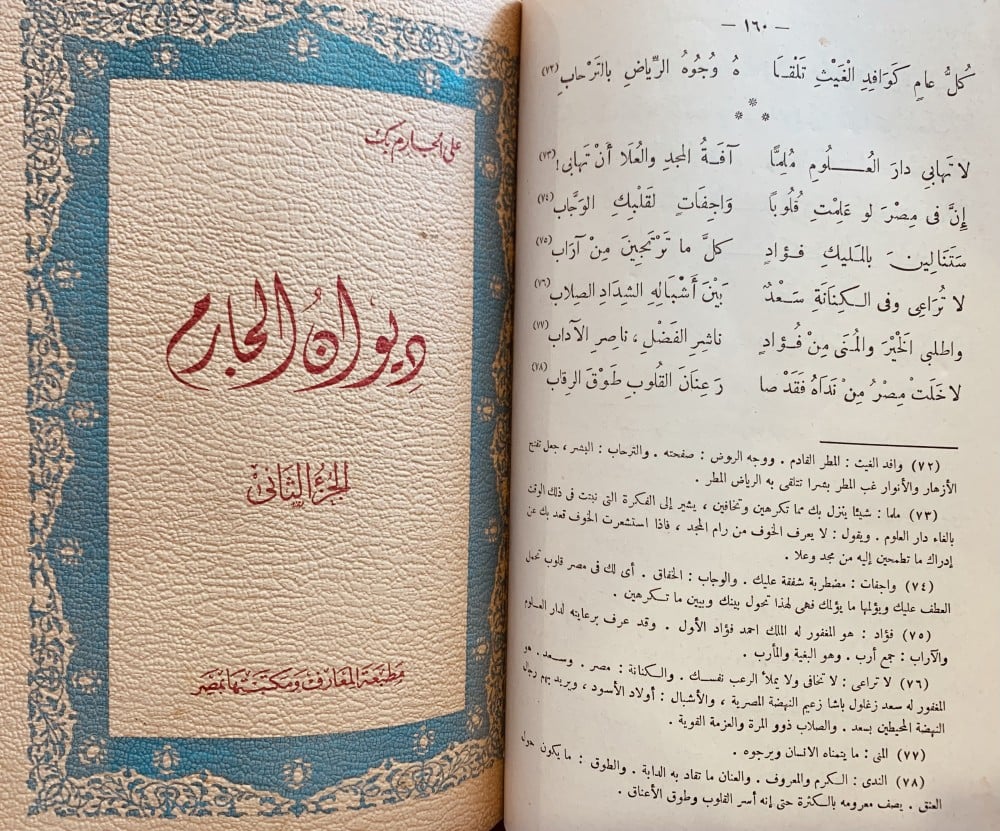 على الجارم بك
ديوانُ الجارم
الجزء الثاني
مطبعة المعارف ومكتبتها بمصر
— ١٦٠ —
كُلُّ عامٍ كَوَافِدِ الْغَيْثِ تَلْقَـا هُ وُجُوهُ الرِّياضِ بالتَرْحابِ(٧٢)
* * *
لا تَهابى دارَ العُـــلُومِ مُلِمًّا آفَـةُ المجدِ والعُلَا أنْ تَهابى!(٧٣)
إنَّ فى مِصْرَ لو عَلِمْتِ قُلُوبًا وَاجِفَاتٍ لقَلبِكِ الوَجَّابِ(٧٤)
سَتَنَالِينَ بالمَليكِ فـؤادٍ كلَّ ما تَرْتَجِينَ مِنْ آرَابِ(٧٥)
لا تُرَاعِى وفى الـكِنَانَةِ سَعْدٌ بَيْنَ أَشْبَالِهِ الشِدَادِ الصِلابِ(٧٦)
واطلبى الخَيْرَ والمُنَى مِنْ فُـؤادٍ ناشِرِ الفَضْلِ ، ناصِرِ الآدابِ(٧٧)
لا خَلَتْ مِصْرُ مِنْ نَدَاهُ فَقَدْ صا رَ عِنَانَ القُلوبِ طَوْقَ الرِقابِ(٧٨)
(٧٢) وافد الغيث : المطر القادم . ووجه الروض : صفحته . والترحاب : البشر ، جعل تفتح
الأزهار والأنوار غب المطر بشرا تتلقى به الرياض المطر .
(٧٣) ملما : شيئا ينزل بك مما تكرهين وتخافين ، يشير إلى الفكرة التى نبتت فى ذلك الوقت
بالغاء دار العلوم . ويقول : لا يعرف الخوف من رام المجد ، فاذا استشعرت الخوف قعد بك عن
إدراك ما تطمحين إليه من مجد وعلا .
(٧٤) واجفات : مضطربة شفقة عليك . والوجاب : الخفاق . أى لك فى مصر قلوب تحمل
العطف عليك ويؤلمها ما يؤلمك فهى لهذا تحول بينك وبين ما تـكرهين .
(٧٥) فؤاد : هو المغفور له الملك احمد فؤاد الأول . وقد عرف برعايته لدار العـلوم
والآراب : جمع أرب . وهو البغية والمأرب .
(٧٦) لا تراعى : لا تخافى ولا يملأ الرعب نفسـك . والـكنانة : مصر . وسـعد . هو
المغفور له سعد زغلول باشا زعيم النهضة المصرية ، والأشبال : أولاد الأسود ، ويريد بهم رجال
النهضة المحيطين بسعد . والصلاب ذوو المرة والعزمة القوية .
(٧٧) المنى : ما يتمناه الانسان ويرجوه .
(٧٨) الندى : الـكرم والمعروف . والعنان ما تقاد به الدابة . والطوق : ما يكون حول
العنق . يصف معروفه بالـكثرة حتى إنه أسر القلوب وطوق الأعناق .